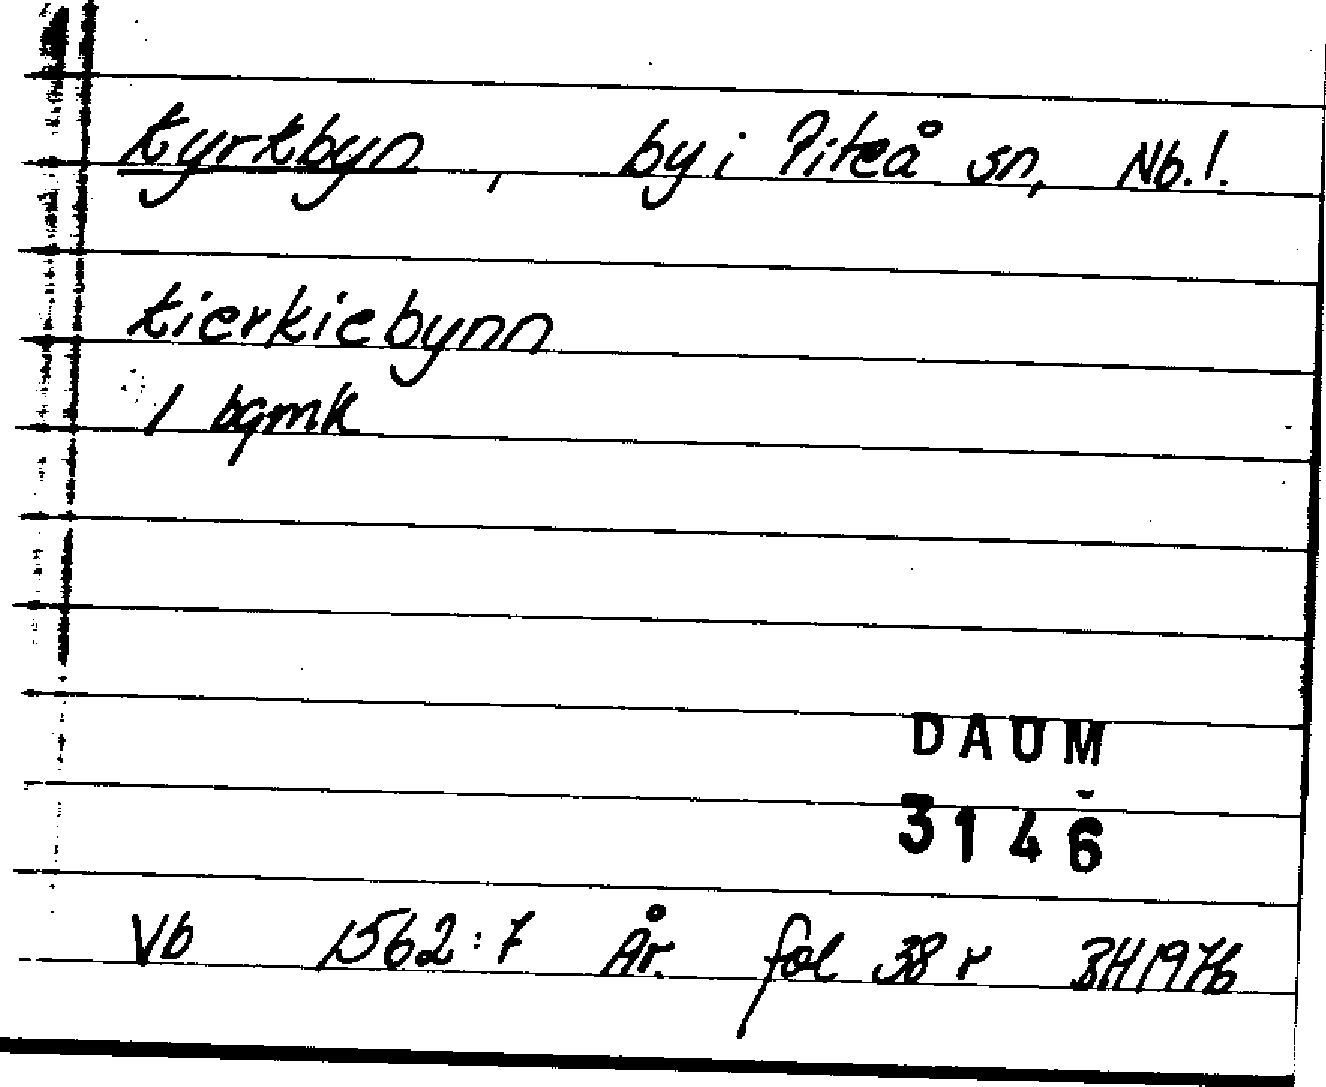 tyrtbyn, by i Piteå sn, Nb.l.
tierkiebynn
1 bgmk
DAUM
3146
Vb 1562:7 År. fol 38 r BH 1976